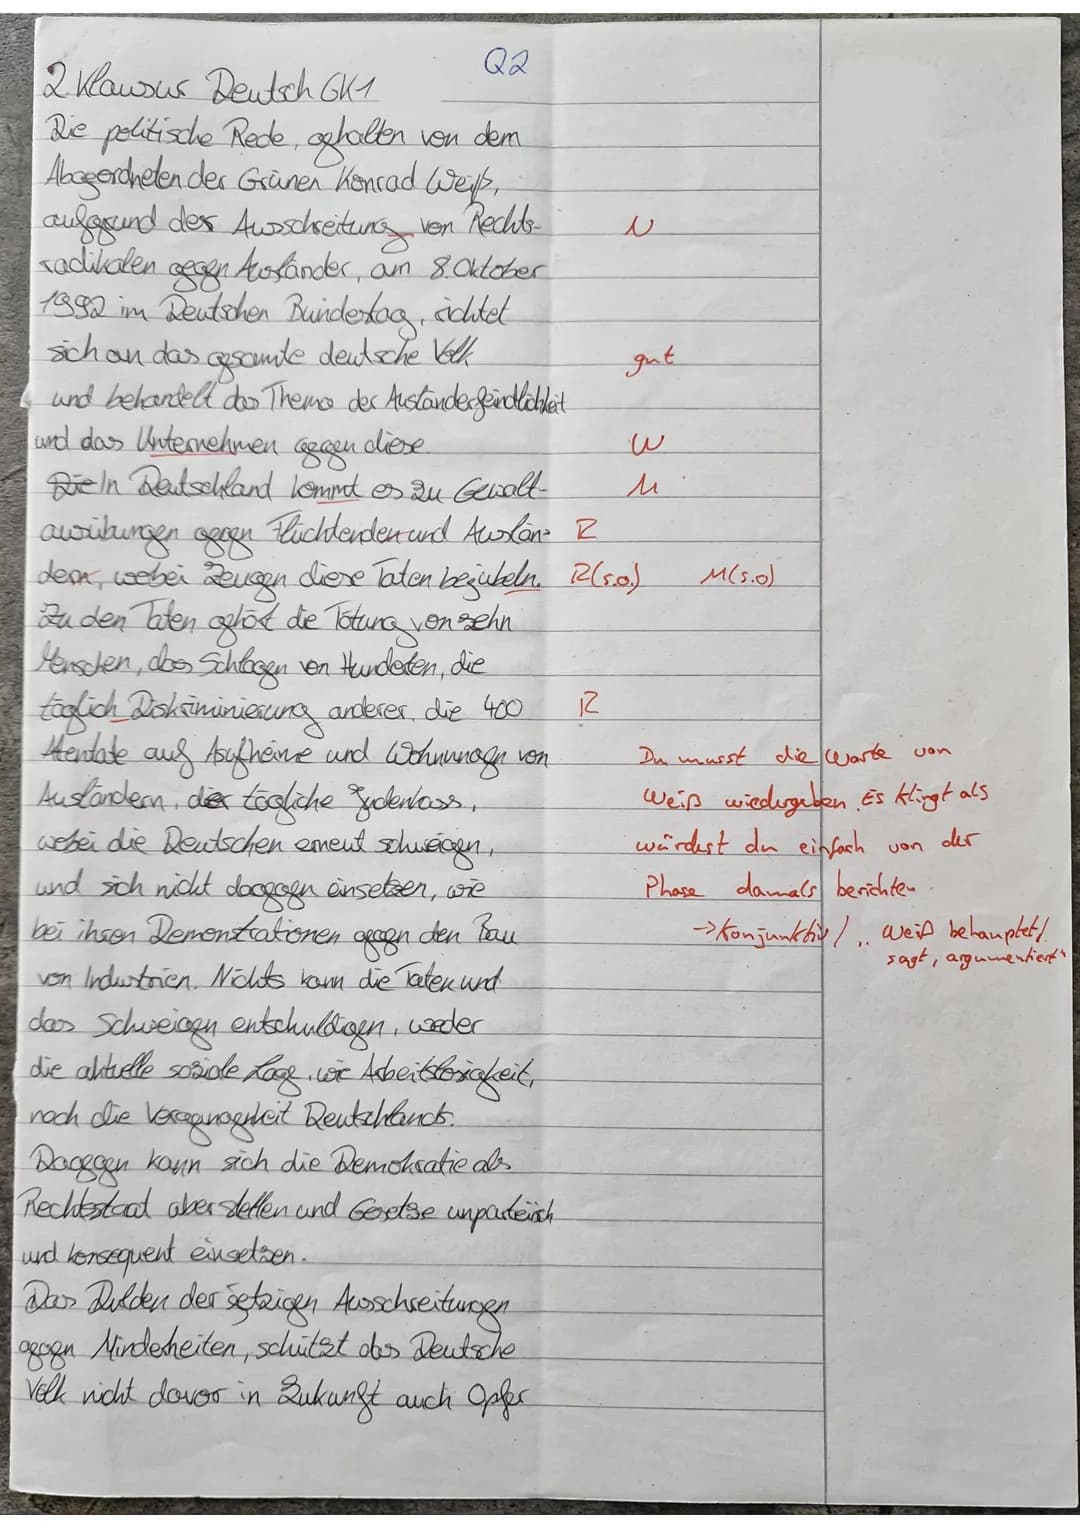 Q2
2. Klausur Deutsch GK1
Die politische Rede, gehalten von dem
Abgeordneten der Grünen Konrad Weiß,
aufgrund der Ausschreitung von Rechts- N
radikalen gegen Ausländer, am 8. Oktober
1992 im Deutschen Bundestag, richtet
sich an das gesamte deutsche Volk gut
und behandelt das Thema der Ausländerfeindlichkeit
und das Unternehmen gegen diese. W
In Deutschland kommt es zu Gewalt- M
ausübungen gegen Flüchtenden und Auslän- R
dern, wobei Zeugen diese Taten bejubeln. R(s.o.) M(s.o)
Zu den Taten gehört die Tötung von zehn
Menschen, das Schlagen von Hunderten, die
täglich Diskriminierung anderer, die 400 R
Attentate auf Asylheime und Wohnungen von Du musst die Worte von
Ausländern, der tägliche Judenhass, Weiß wiedergeben. Es klingt als
wobei die Deutschen erneut schweigen, würdest du einfach von der
und sich nicht dagegen einsetzen, wie Phase damals berichten
bei ihren Demonstrationen gegen den Bau → Konjunktiv / „Weiß behauptet/
von Industrien. Nichts kann die Taten und sagt, argumentiert"
das Schweigen entschuldigen, weder
die aktuelle soziale Lage, wie Arbeitslosigkeit,
noch die Vergangenheit Deutschlands.
Dagegen kann sich die Demokratie als
Rechtstaat aber stellen und Gesetze unparteiisch
und konsequent einsetzen.
Das Dulden der jetzigen Ausschreitungen
gegen Minderheiten, schützt das Deutsche
Volk nicht davor in Zukunft auch Opfer